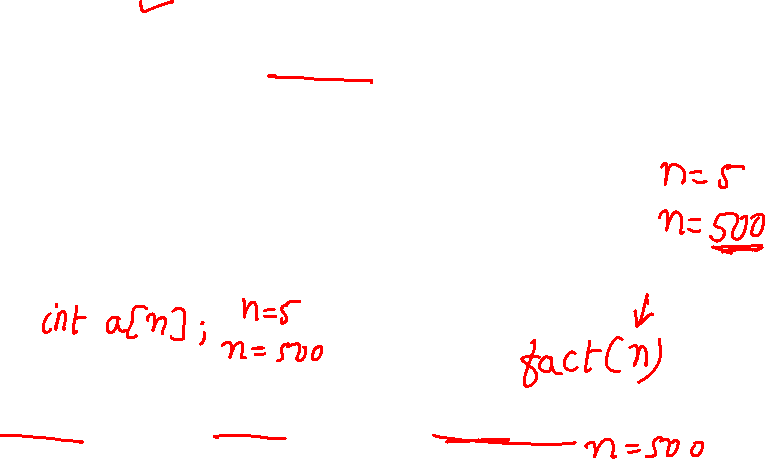 n=5
n=500
int a[n]; n=5
n=500
fact(n)
n=500